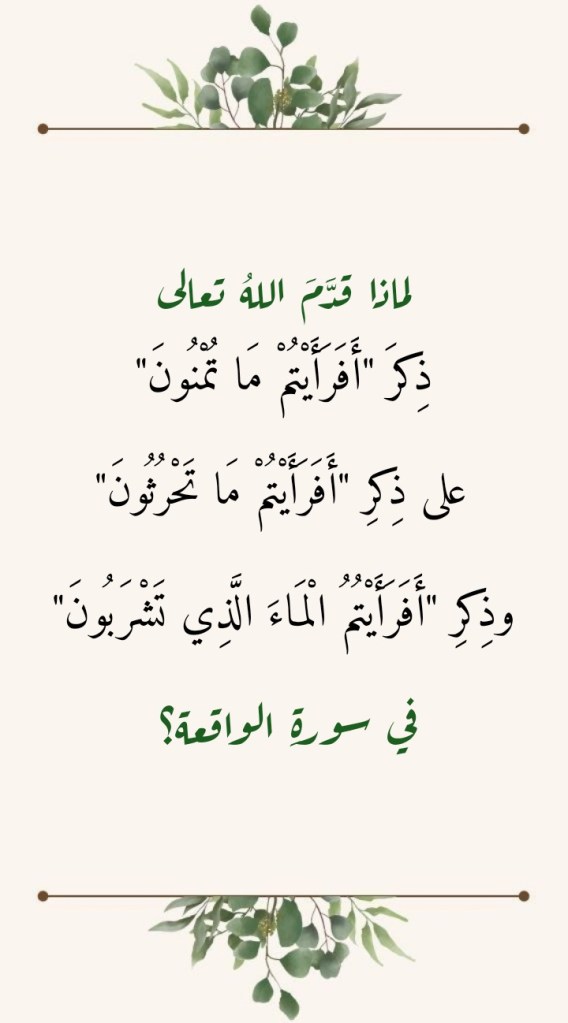 لماذا قدَّمَ اللهُ تعالى
ذِكرَ "أَفَرَأَيْتُمْ مَا تُمْنُونَ"
على ذِكرِ "أَفَرَأَيْتُمْ مَا تَحْرُثُونَ"
وذِكرِ "أَفَرَأَيْتُمُ الْمَاءَ الَّذِي تَشْرَبُونَ"
في سورةِ الواقعة؟